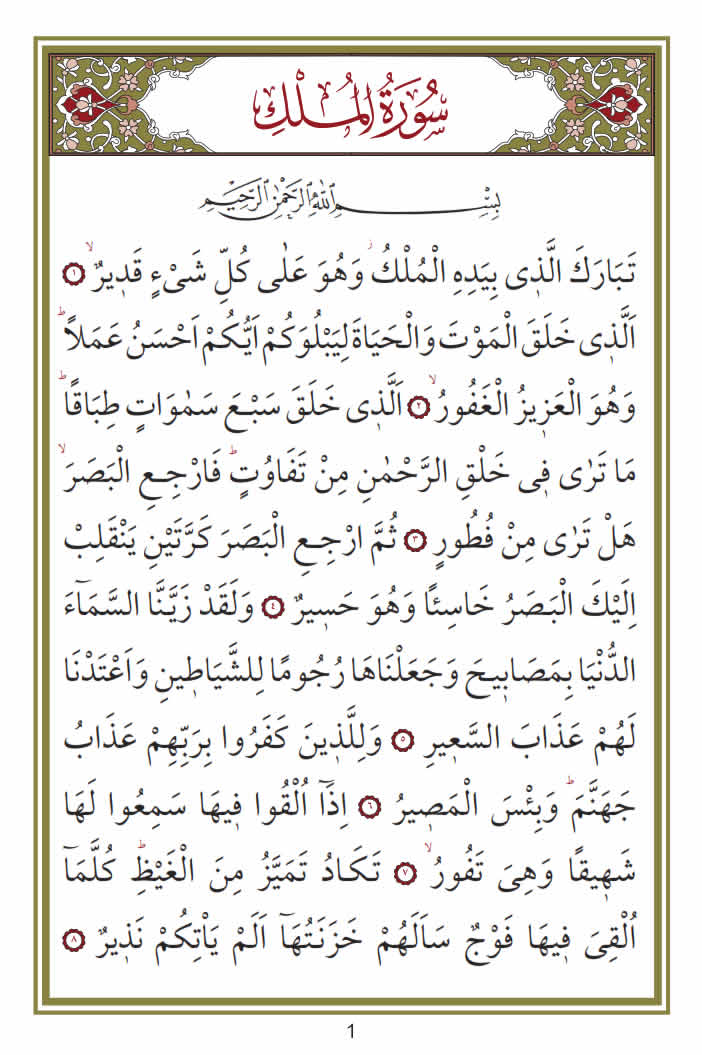 سُورَةُ الْمُلْكِ
بِسْمِ اللّٰهِ الرَّحْمٰنِ الرَّح۪يمِ
تَبَارَكَ الَّذ۪ى بِيَدِهِ الْمُلْكُۘ وَهُوَ عَلٰى كُلِّ شَىْءٍ قَد۪يرٌۙ ﴿١﴾
اَلَّذ۪ى خَلَقَ الْمَوْتَ وَالْحَيَاةَ لِيَبْلُوَكُمْ اَيُّكُمْ اَحْسَنُ عَمَلًاۜ
وَهُوَ الْعَز۪يزُ الْغَفُورُۙ ﴿٢﴾ اَلَّذ۪ى خَلَقَ سَبْعَ سَمٰوَاتٍ طِبَاقًاۜ
مَا تَرٰى ف۪ى خَلْقِ الرَّحْمٰنِ مِنْ تَفَاوُتٍۜ فَارْجِعِ الْبَصَرَۙ
هَلْ تَرٰى مِنْ فُطُورٍ ﴿٣﴾ ثُمَّ ارْجِعِ الْبَصَرَ كَرَّتَيْنِ يَنْقَلِبْ
اِلَيْكَ الْبَصَرُ خَاسِئًا وَهُوَ حَس۪يرٌ ﴿٤﴾ وَلَقَدْ زَيَّنَّا السَّمَٓاءَ
الدُّنْيَا بِمَصَاب۪يحَ وَجَعَلْنَاهَا رُجُومًا لِلشَّيَاط۪ينِ وَاَعْتَدْنَا
لَهُمْ عَذَابَ السَّع۪يرِ ﴿٥﴾ وَلِلَّذ۪ينَ كَفَرُوا بِرَبِّهِمْ عَذَابُ
جَهَنَّمَۜ وَبِئْسَ الْمَص۪يرُ ﴿٦﴾ اِذَٓا اُلْقُوا ف۪يهَا سَمِعُوا لَهَا
شَه۪يقًا وَهِىَ تَفُورُۙ ﴿٧﴾ تَكَادُ تَمَيَّزُ مِنَ الْغَيْظِۜ كُلَّمَٓا
اُلْقِىَ ف۪يهَا فَوْجٌ سَاَلَهُمْ خَزَنَتُهَٓا اَلَمْ يَاْتِكُمْ نَذ۪يرٌ ﴿٨﴾
1